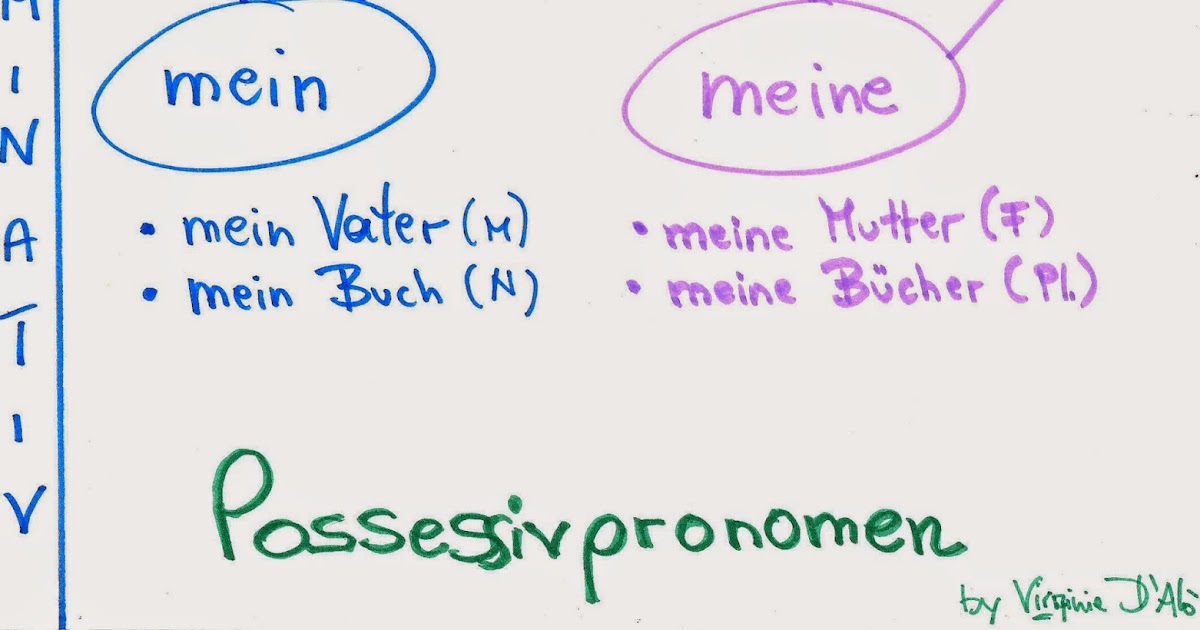 M
I
N
A
T
I
V
mein
meine
• mein Vater (M)
• mein Buch (N)
• meine Mutter (F)
• meine Bücher (Pl.)
Possessivpronomen
by Virginie D'Alò